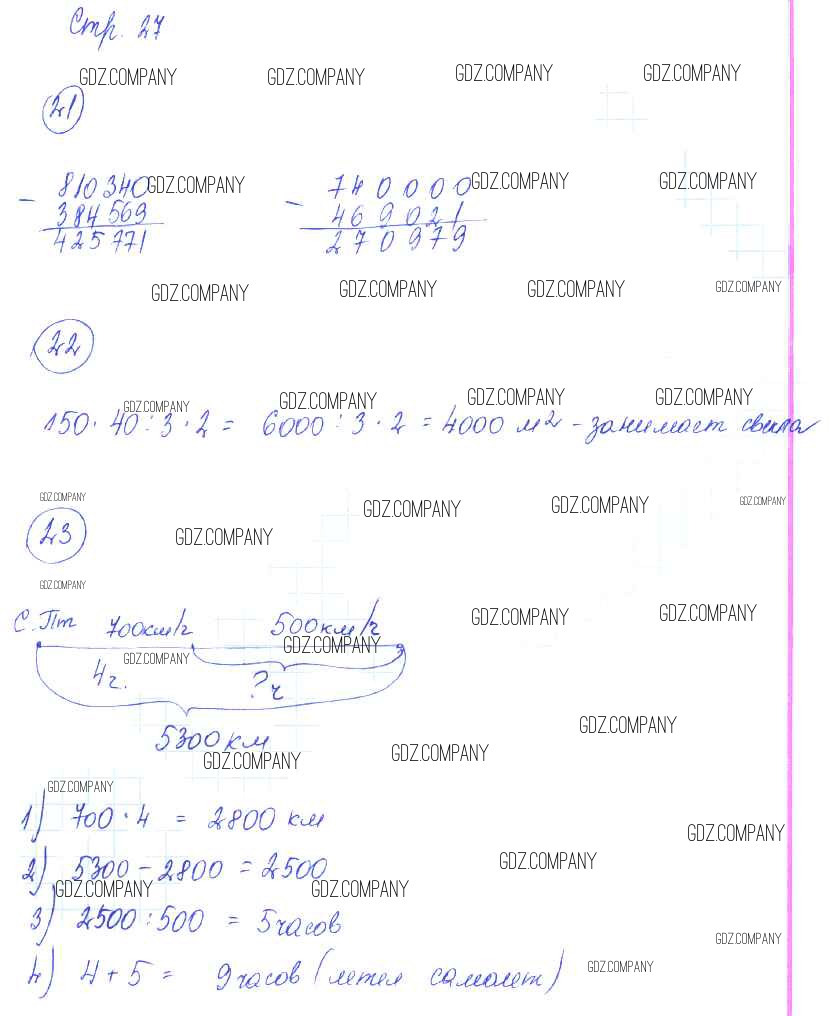 Стр. 27
GDZ.COMPANY GDZ.COMPANY GDZ.COMPANY GDZ.COMPANY
21
- 810340 GDZ.COMPANY - 740000 GDZ.COMPANY GDZ.COMPANY
384569 469021
425771 270979
GDZ.COMPANY GDZ.COMPANY GDZ.COMPANY GDZ.COMPANY
22
GDZ.COMPANY GDZ.COMPANY GDZ.COMPANY GDZ.COMPANY
150 · 40 : 3 · 2 = 6000 : 3 · 2 = 4000 м2 - занимает свекла
GDZ.COMPANY GDZ.COMPANY GDZ.COMPANY GDZ.COMPANY
23 GDZ.COMPANY
GDZ.COMPANY
С. Пт 700км/ч 500км/ч GDZ.COMPANY GDZ.COMPANY
GDZ.COMPANY GDZ.COMPANY
4ч. ?ч
GDZ.COMPANY
5300 км
GDZ.COMPANY GDZ.COMPANY
GDZ.COMPANY
1) 700 · 4 = 2800 км
GDZ.COMPANY
2) 5300 - 2800 = 2500 GDZ.COMPANY
GDZ.COMPANY GDZ.COMPANY
3) 2500 : 500 = 5 часов
GDZ.COMPANY
4) 4 + 5 = 9 часов (летел самолет) GDZ.COMPANY